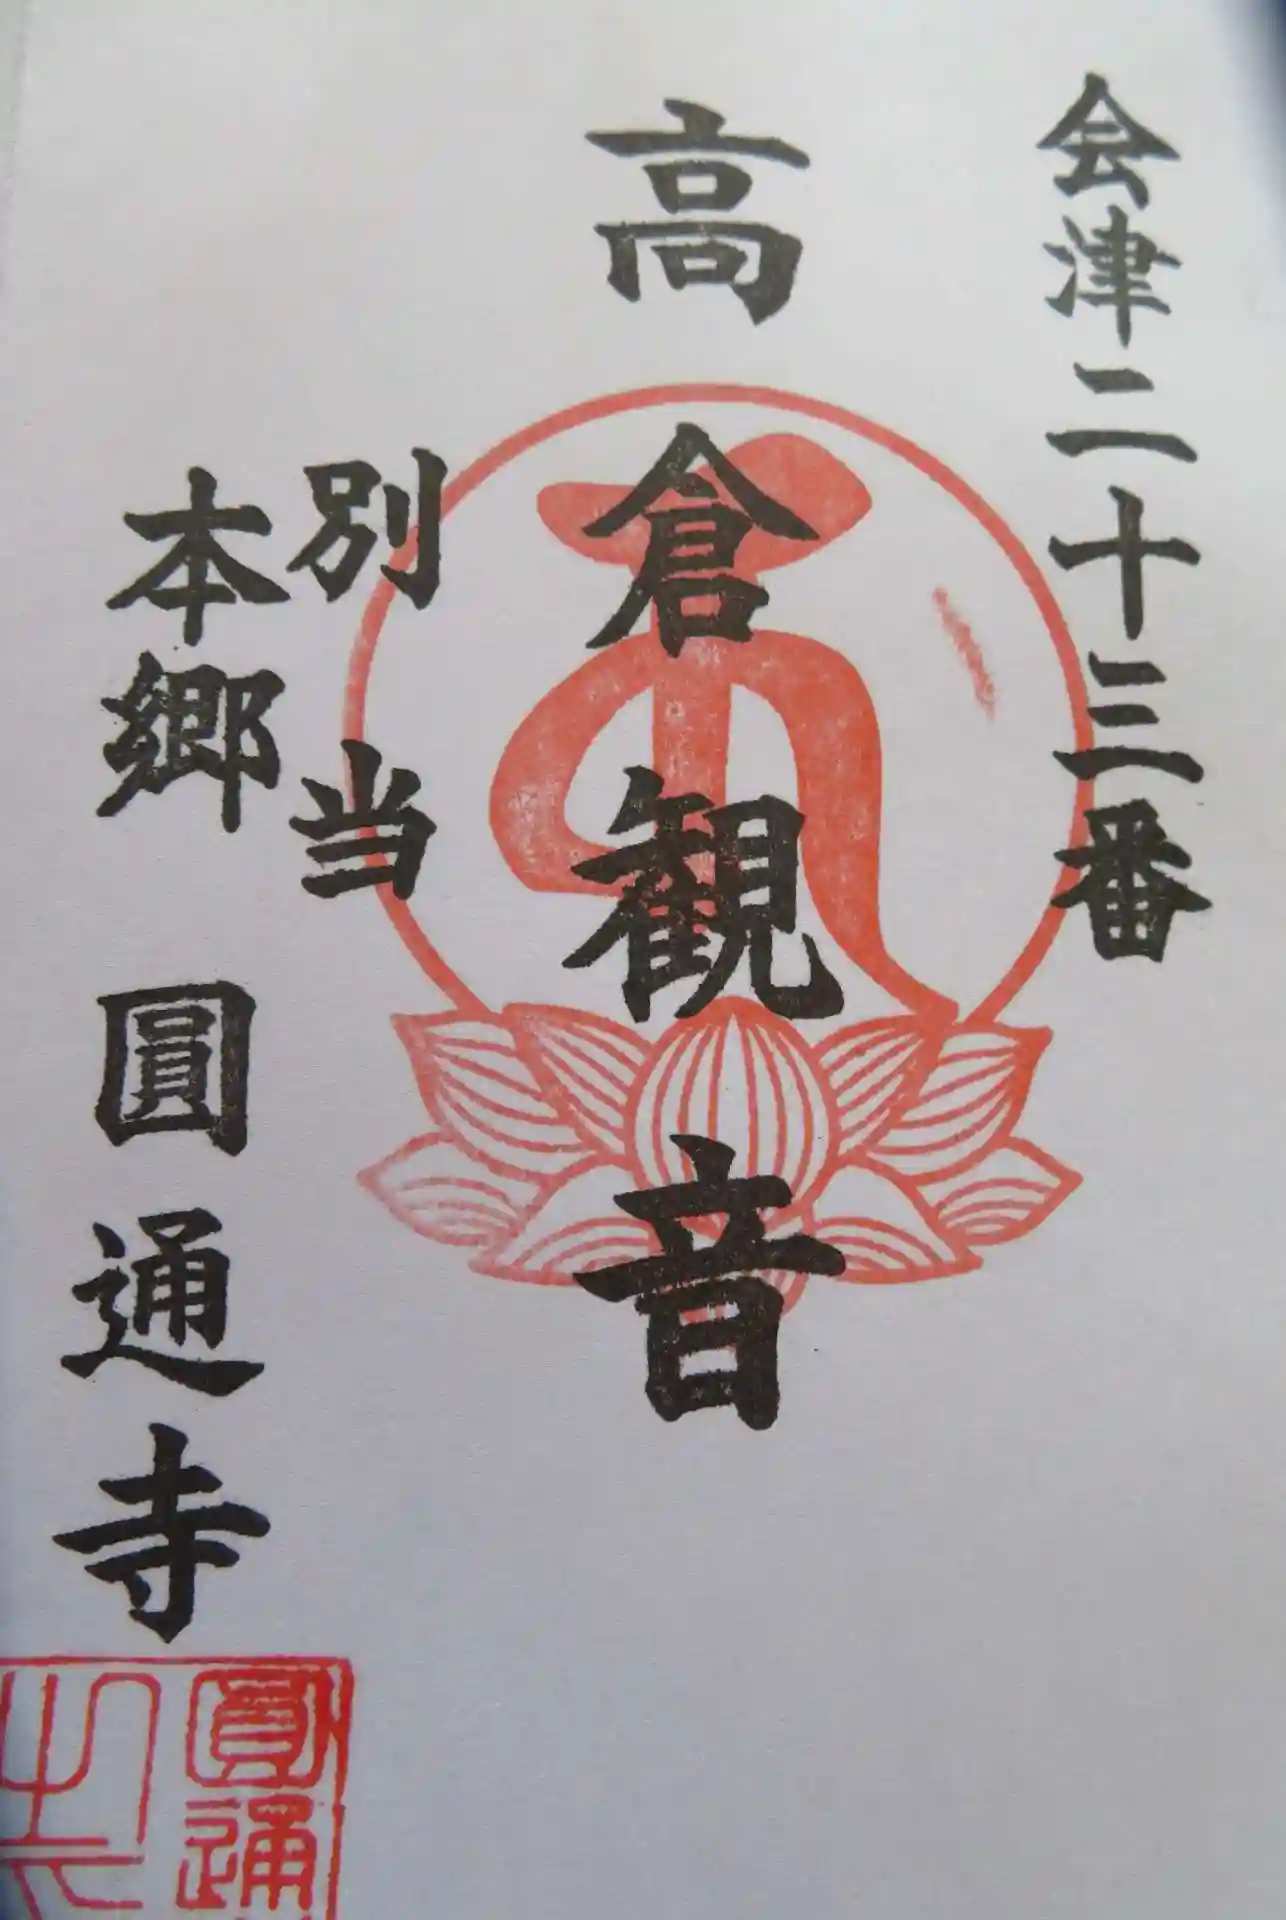 会津二十三番
高倉観音
別当
本郷 圓通寺
圓通